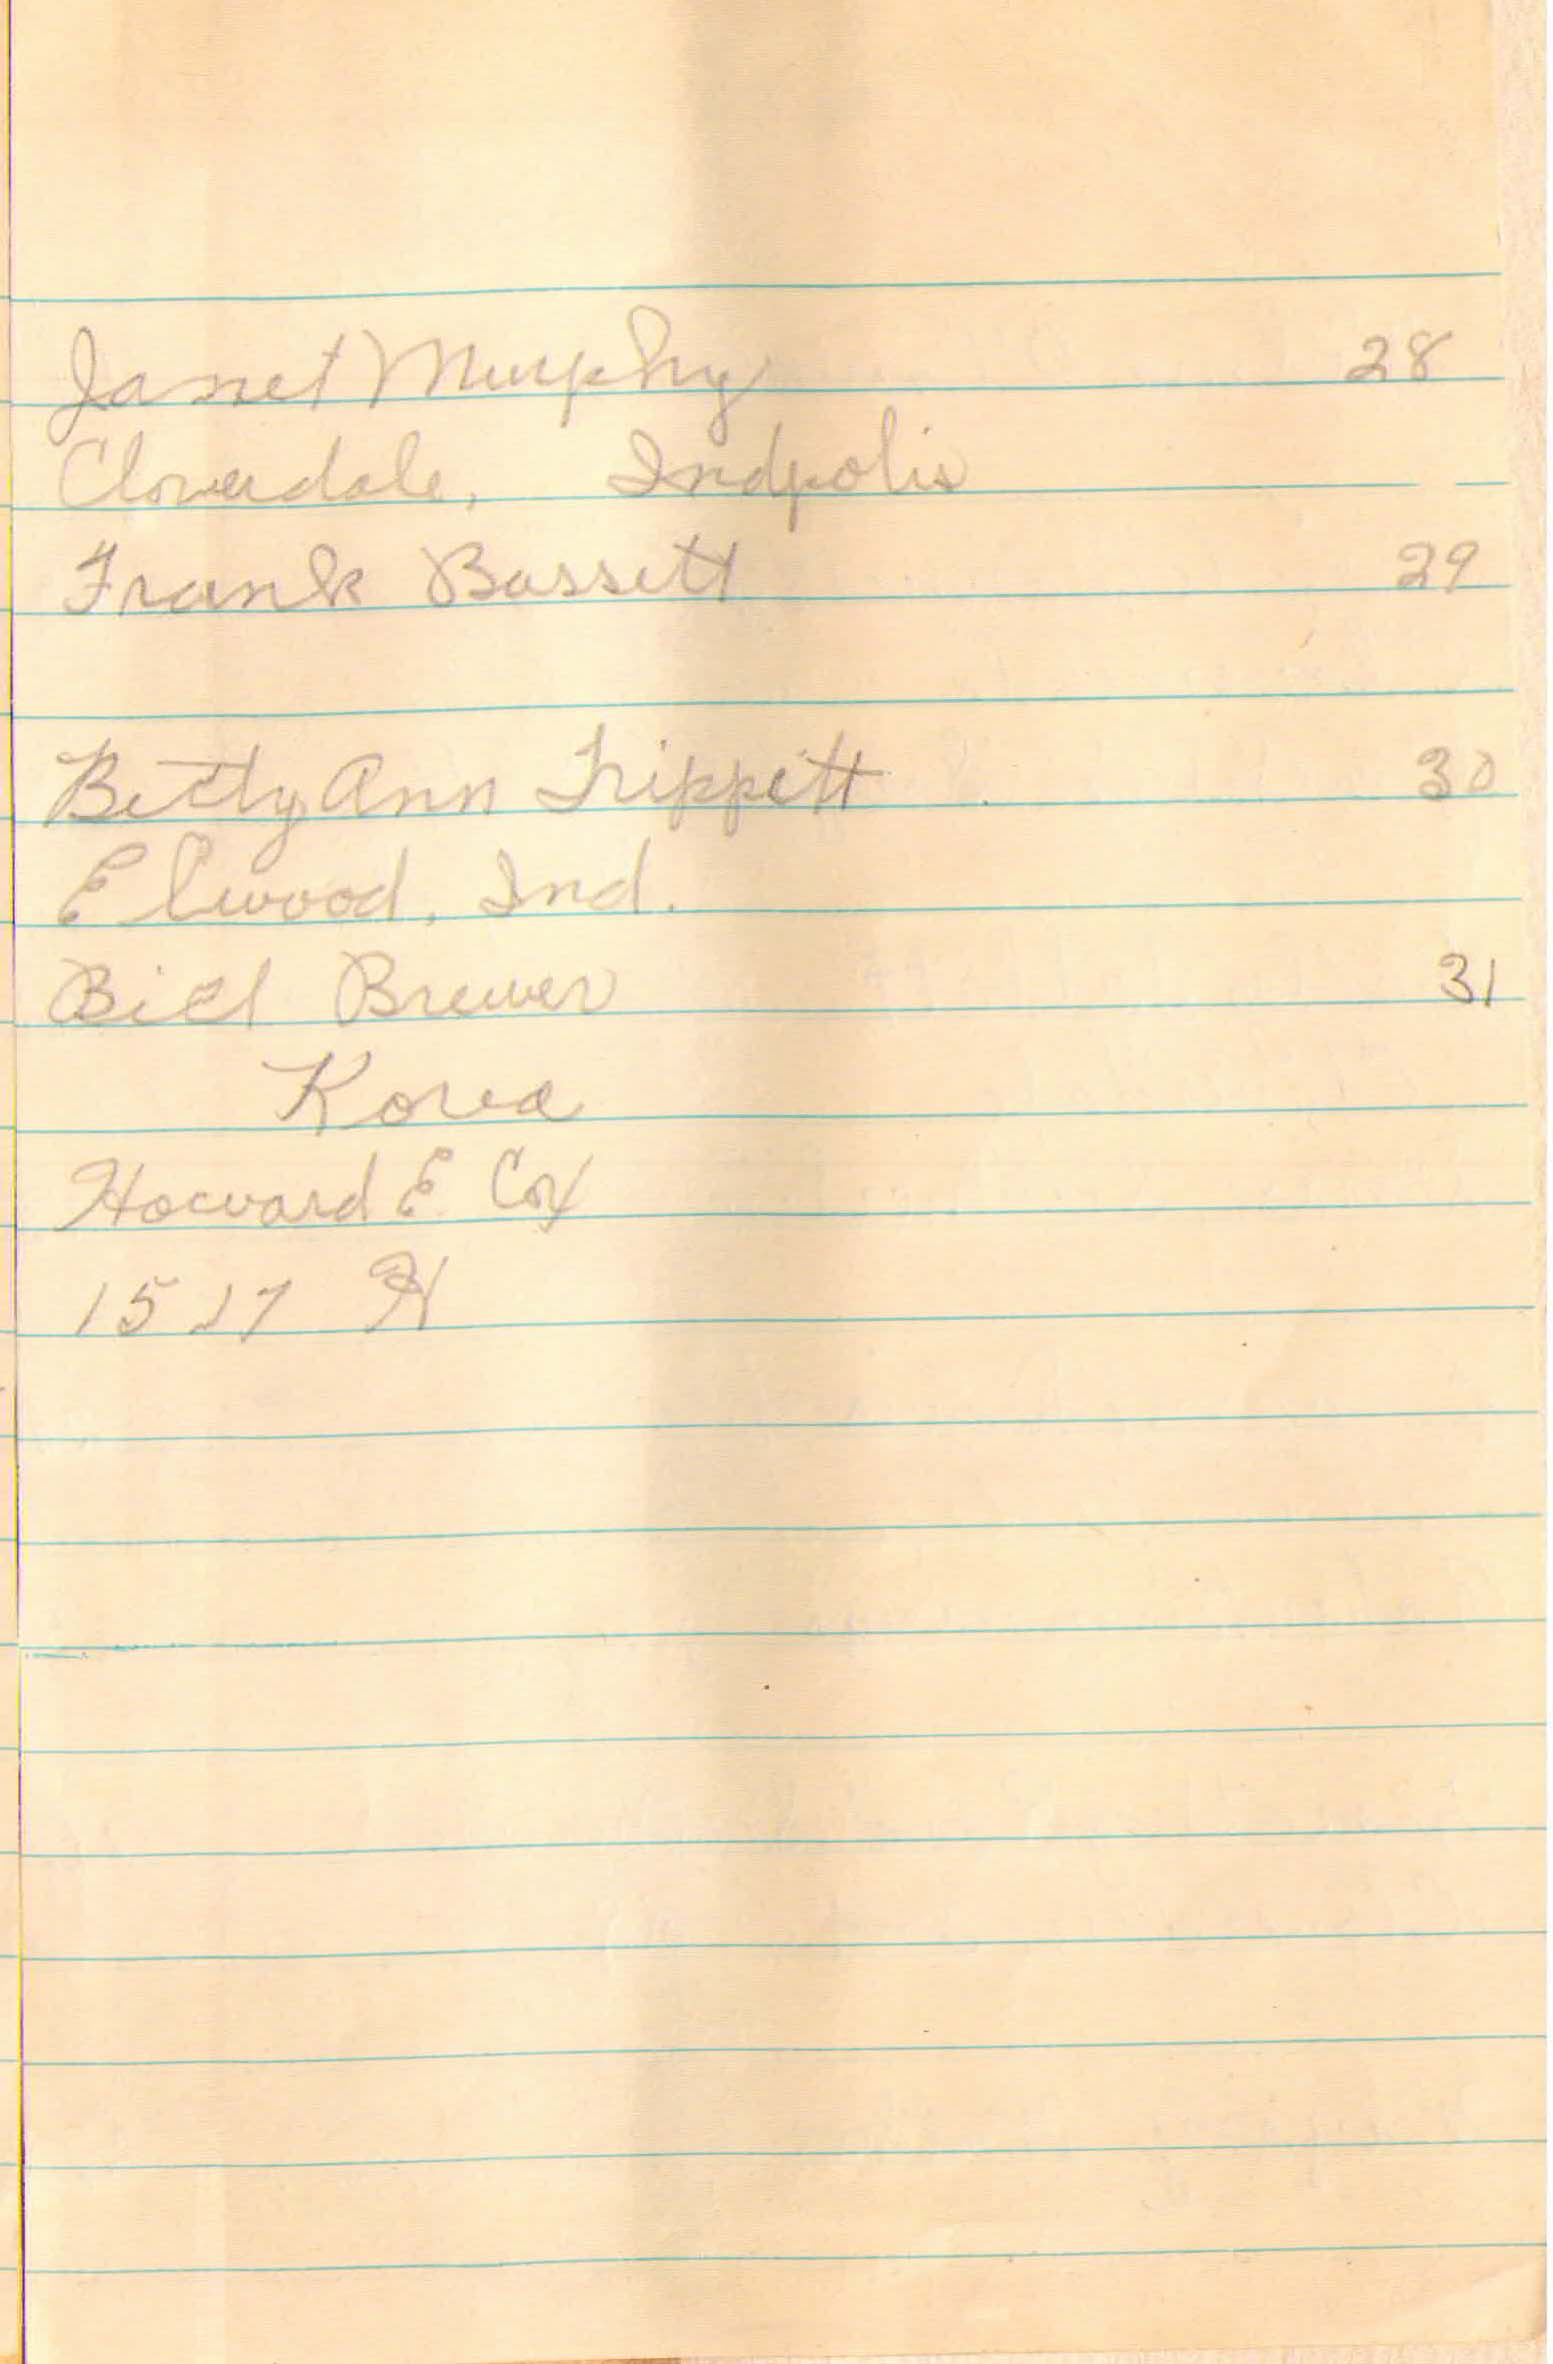 Janet Murphy 28
Cloverdale, Indpolis
Frank Bassett 29
Betty Ann Trippett 30
Elwood, Ind.
Bill Brewer 31
Korea
Howard E Cox
1517 H